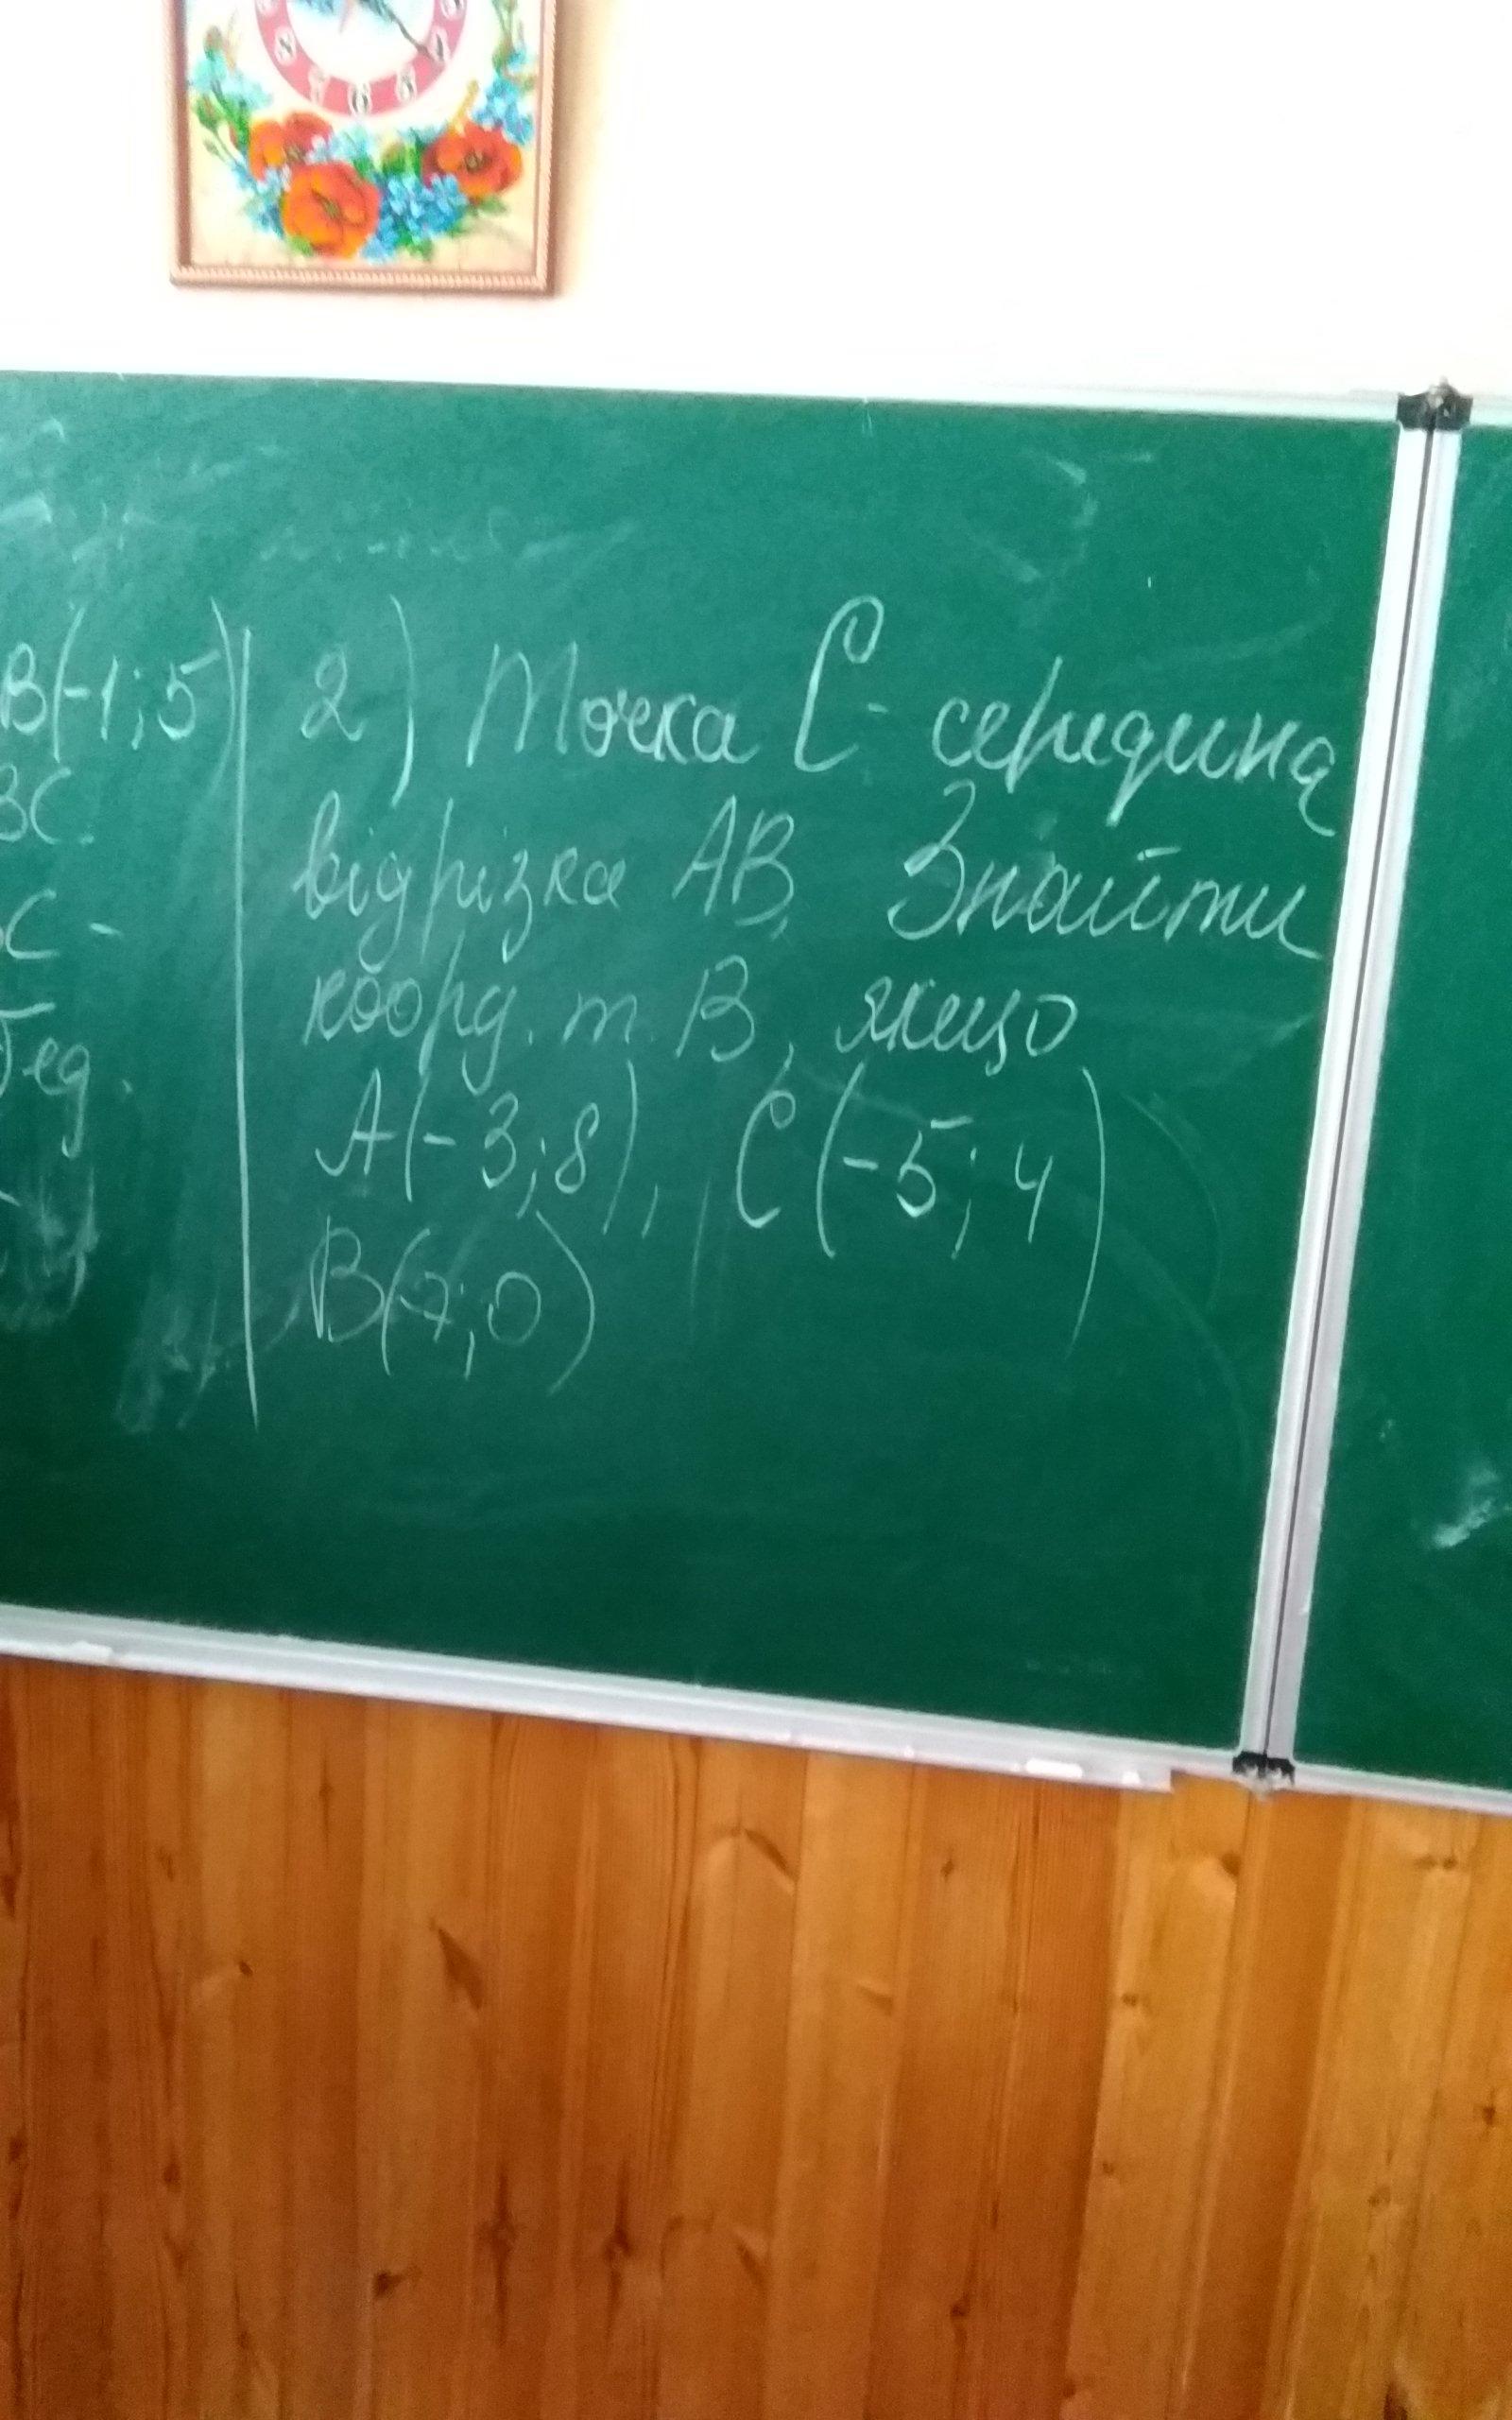 8 7 6 5 4
B(-1; 5)
BC
C -
2) Точка С - середина
відрізка АВ. Знайти
коорд. т. В, якщо
А(-3; 8), С(-5; 4)
В(-7; 0)